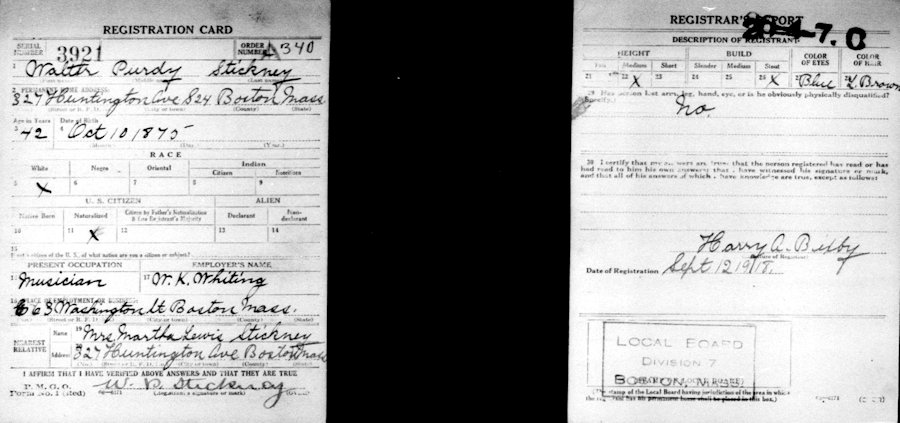 REGISTRATION CARD
SERIAL NUMBER 3921 ORDER NUMBER A340
1 Walter Purdy Stickney
(First name) (Middle name) (Last name)
2 PERMANENT HOME ADDRESS:
327 Huntington Ave S24 Boston Mass
(Street or R. F. D.) (City or town) (County) (State)
Age in Years Date of Birth
3 42 4 Oct 10 1875
(Month.) (Day.) (Year.)
RACE
White Negro Oriental Indian
Citizen Noncitizen
5 X 6 7 8 9
U. S. CITIZEN ALIEN
Native Born Naturalized Citizen by Father's Naturalization Before Registrant's Majority Declarant Non-declarant
10 11 X 12 13 14
15
If not a citizen of the U. S., of what nation are you a citizen or subject?
PRESENT OCCUPATION EMPLOYER'S NAME
16 Musician 17 W. K. Whiting
18 PLACE OF EMPLOYMENT OR BUSINESS:
663 Washington St Boston Mass.
(Street or R. F. D.) (City or town) (County) (State)
NEAREST RELATIVE
Name 19 Mrs Martha Lewis Stickney
Address 20 327 Huntington Ave Boston Mass
(No.) (Street or R. F. D.) (City or town) (County) (State)
I AFFIRM THAT I HAVE VERIFIED ABOVE ANSWERS AND THAT THEY ARE TRUE
P. M. G. O. W. P. Stickney
Form No. 1 (Red) (Registrant's signature or mark) (OVER)
REGISTRAR'S REPORT
20-4-7. C
DESCRIPTION OF REGISTRANT
HEIGHT BUILD COLOR OF EYES COLOR OF HAIR
Tall Medium Short Slender Medium Stout
21 22 X 23 24 25 26 X 27 Blue 28 L. Brown
29 Has person lost arm, leg, hand, eye, or is he obviously physically disqualified?
(Specify.)
No.
30 I certify that my answers are true; that the person registered has read or has
had read to him his own answers; that I have witnessed his signature or mark,
and that all of his answers of which I have knowledge are true, except as follows:
Harry A. Bixby
(Signature of Registrar)
Date of Registration Sept 12 1918.
LOCAL BOARD
DIVISION 7
BOSTON, MASS.
(STAMP OF LOCAL BOARD)
(The stamp of the Local Board having jurisdiction of the area in which
the registrant has his permanent home shall be placed in this box.)
(OVER)